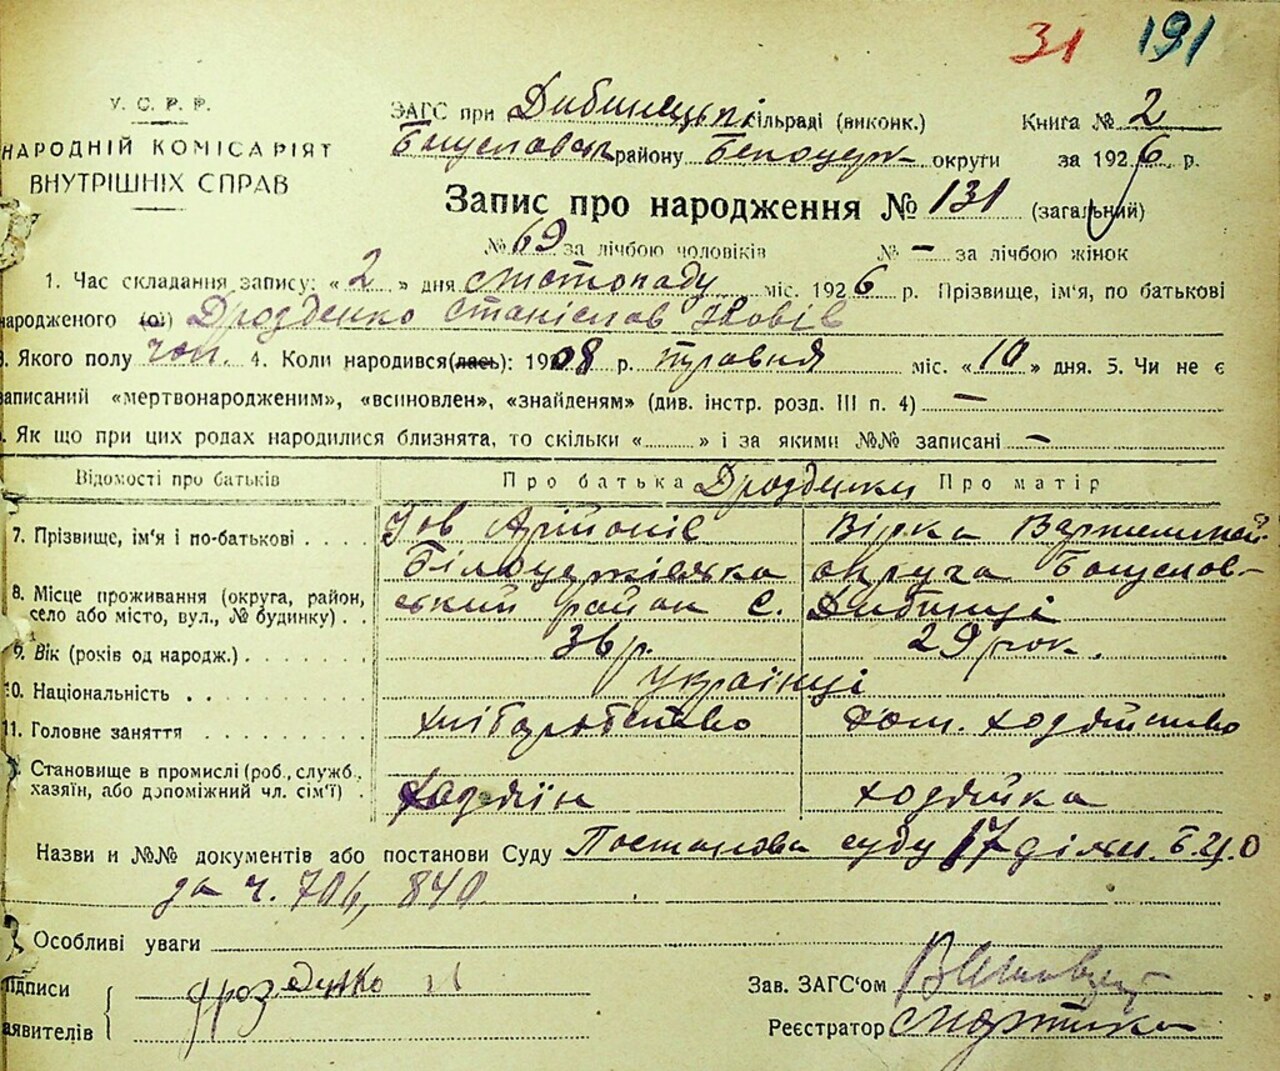 31 191
У. С. Р. Р.
НАРОДНІЙ КОМІСАРІЯТ
ВНУТРІШНІХ СПРАВ
ЗАГС при Дибинецькі сільраді (виконк.) Книга № 2
Богуславськ району Білоцерк округи за 1926 р.
Запис про народження № 131 (загальний)
№ 69 за лічбою чоловіків № — за лічбою жінок
1. Час складання запису: «2» дня листопаду міс. 1926 р. Прізвище, ім'я, по батькові
народженого (ої) Дрозденко Станіслав Йовів
3. Якого полу чол. 4. Коли народився(лась): 1908 р. травня міс. «10» дня. 5. Чи не є
записаний «мертвонародженим», «всиновлен», «знайденям» (див. інстр. розд. III п. 4) —
Як що при цих родах народилися близнята, то скільки « » і за якими №№ записані —
Відомості про батьків Про батька Дрозденки Про матір
7. Прізвище, ім'я і по-батькові . . . Йов Вірка
Білоцерківська округа Богуслов-
8. Місце проживання (округа, район,
село або місто, вул., № будинку) . . ський район с. Дибинці
9. Вік (років од народж.) . . . . 36 р. 29 рок.
10. Національність . . українці
11. Головне заняття . . . . хліборобство дом. ходяйство
Становище в промислі (роб., служб.,
хазяїн, або допоміжний чл. сім'ї) . ходяїн ходяйка
Назви и №№ документів або постанови Суду Постанова суду 17 дільн. Б.Ц.О
за ч. 706, 840
Особливі уваги
Підписи Дрозденко Зав. ЗАГС'ом
заявителів Реєстратор